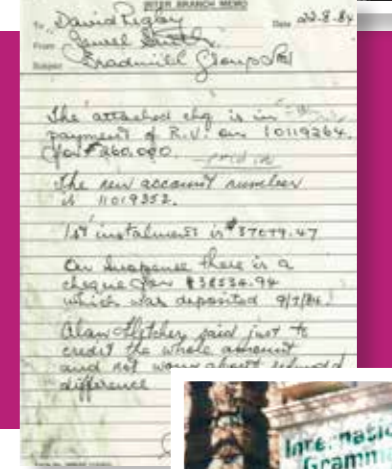 INTER BRANCH MEMO
To David Rigby Date 22.8.84
From
Subject Bradmill Group
The attached chq is in
payment of R.V. on 10119264.
for $260,000.
The new account number
is 11019352.
1st instalment is $37079.47
On Suspense there is a
cheque for $38534.94
which was deposited 9/7/84.
Alan Fletcher said just to
credit the whole amount
and not worry about
difference